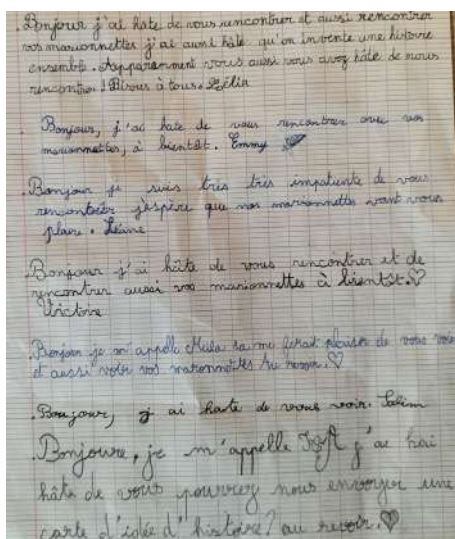 . Bonjour j'ai hâte de vous rencontrer et aussi rencontrer
vos marionnettes j'ai aussi hâte qu'on invente une histoire
ensemble. Apparemment vous aussi vous avez hâte de nous
rencontrer ! Bisous à tous. Zélia
. Bonjour, j'ai hate de vous rencontrer avec vos
marionnettes, à bientôt. Emmy
. Bonjour je suis très très impatiente de vous
rencontrer j'éspère que nos marionnettes vont vous
plaire. Léane
. Bonjour j'ai hâte de vous rencontrer et de
rencontrer aussi vos marionnettes à bientôt.♡
Victoire
. Bonjour je m'appelle sa me ferait plaisir de vous voir
et aussi voir vos marionnettes Au revoir.♡
. Boujour, j ai hate de vous voir. Salim
. Bonjoure, je m'appelle j'ai hai
hâte de vous pourrez nous envoyer une
carte d'idée d'histoire? au revoir.♡